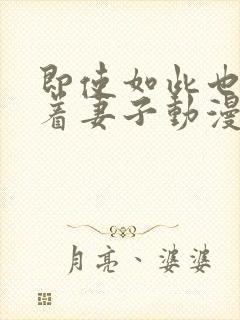 即使如此也
着妻子動漫
月亮、婆婆